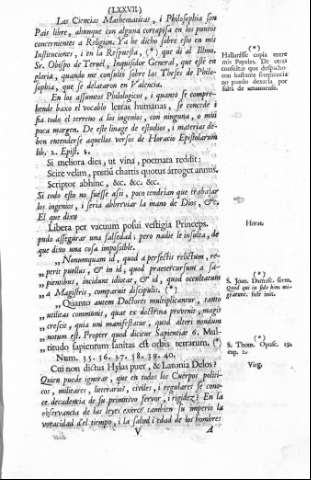 (LXXVII.)
Las Ciencias Mathematicas, i Philosophia son
Pais libre, aunque con alguna cortapisa en los puntos
concernientes a Religion. Ya he dicho sobre esto en mis
Instituciones, i en la Respuesta, (*) que di al Ilmo.
Sr. Obispo de Teruèl, Inquisidor General, que estè en
gloria, quando me consultò sobre las Theses de Philo-
sophia, que se delataron en Valencia.
En los assumtos Philologicos, i quanto se compre-
hende baxo el vocablo letras humanas, se concede i
fia todo el terreno a los ingenios, con ninguna, o mui
poca margen. De este linage de estudios, i materias de-
ben entenderse aquellos versos de Horacio Epistolarum
lib. 2. Epist. 1.
Si meliora dies, ut vina, poemata reddit:
Scire velim, pretiù chartis quotus arroget annus.
Scriptor abhinc, &c. &c. &c.
Si todo esto no fuesse assi, poco tendrian que trabajar
los ingenios, i seria abbreviar la mano de Dios, &c.
El que dixo
Libera per vacuum posui vestigia Princeps.
pudo assegurar una falsedad; pero nadie le insulta, de
que dixo una cosa imposible.
„ Nonnumquam id, quod a perfectis relictum, re-
„ perit pusillus, & in id, quod praetercursum a sa-
„ pientibus, incidunt idiotae, & id, quod occultatum
„ a Magistris, comparuit discipulis. (*)
„ Quanto autem Doctores multiplicantur, tanto
„ utilitas communis, quae ex doctrina provenit, magis
„ crescit, quia uni manifestatur, quod alteri nondum
„ notum est. Propter quod dicitur Sapientiae 6. Mul-
titudo sapientium sanitas est orbis terrarum. (*)
Num. 35. 36. 37. 38. 39. 40.
Cui non dictus Hylas puer, & Latonia Delos?
Quien puede ignorar, que en todos los Cuerpos politi-
cos, militares, literarios, civiles, i regulares se cono-
ce decadencia de su primitivo fervor, i rigidez? En la
observancia de las leyes exerce tambien su imperio la
voracidad del tiempo, i la salud i edad de los hombres
V
A
(*)
Hallaràse copia entre
mis Papeles. De otras
consultas que despacho
con bastante frequencia
no puedo dexarla, por
falta de amanuense.
Horat.
(*)
S. Joan. Damasc. serm.
Quod qui in fide hinc mi-
grarunt. sub init.
(*)
S. Thom. Opusc. 19.
cap. 2.
Virg.